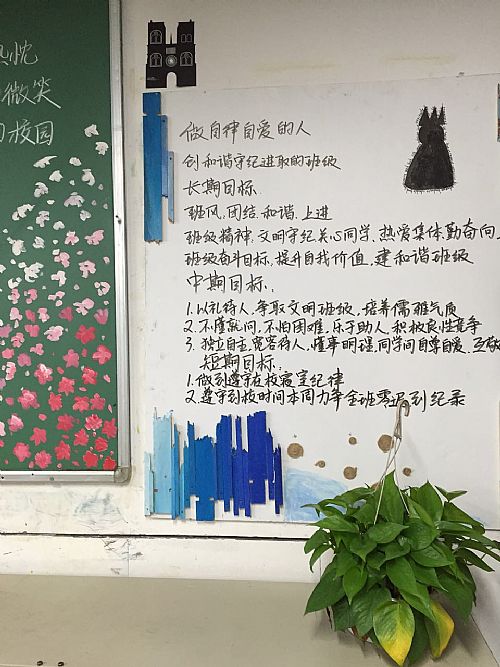 忱
微笑
校园
做自律自爱的人
创和谐守纪进取的班级
长期目标
班风,团结、和谐、上进
班级精神,文明守纪关心同学、热爱集体、勤奋向
班级奋斗目标,提升自我价值,建和谐班级
中期目标:
1.以礼待人,争取文明班级,培养儒雅气质
2.不懂就问,不怕困难,乐于助人,积极良性竞争
3.独立自主,宽容待人,懂事明理,同学间自尊自爱、互敬
短期目标:
1.做到遵守在校寝室纪律
2.遵守到校时间本周力争全班零迟到纪录